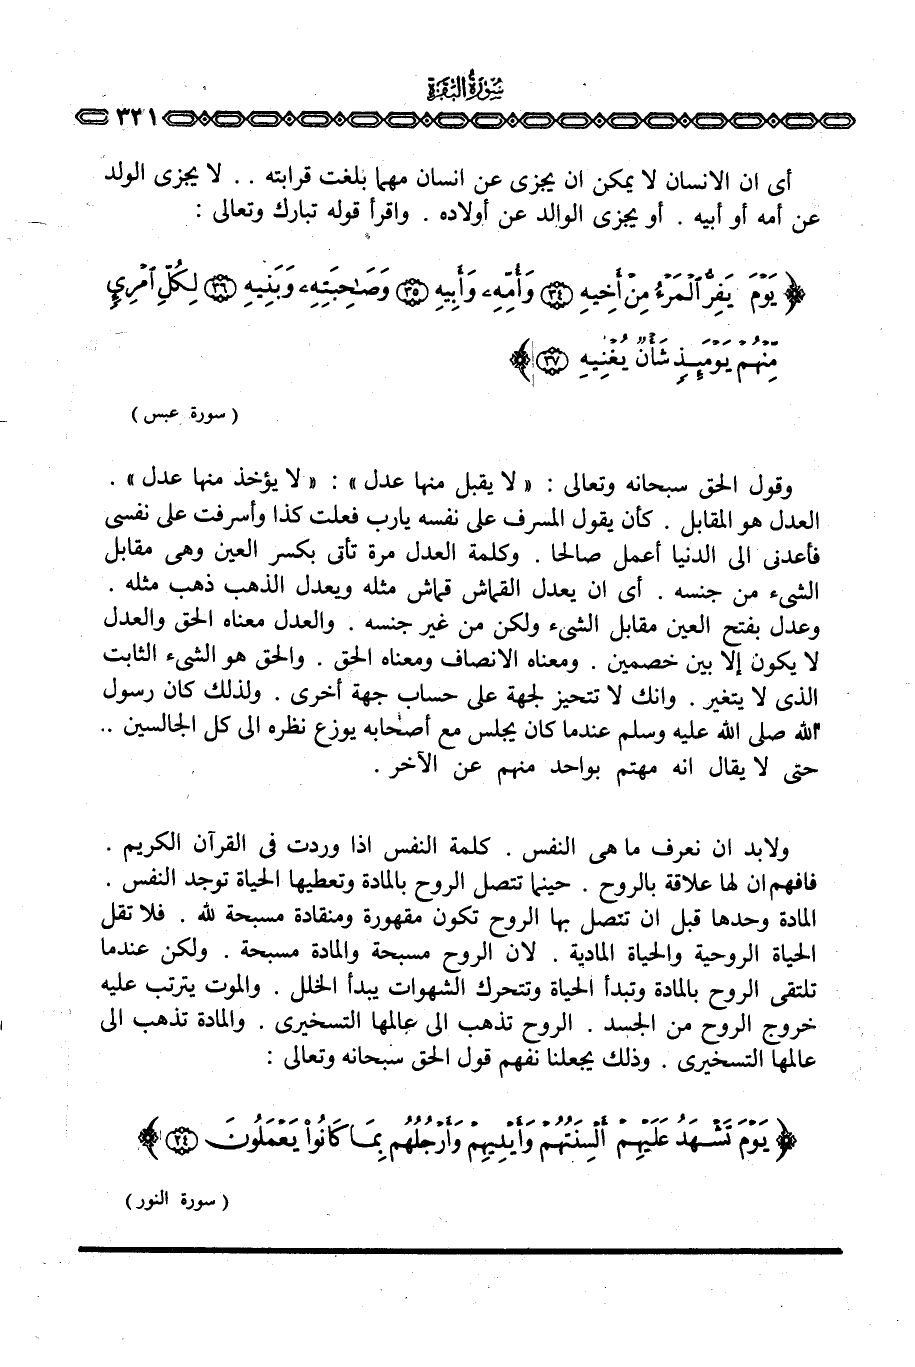 سُورَةُ البَقَرَة
٣٢١
أى ان الانسان لا يمكن ان يجزى عن انسان مهما بلغت قرابته . . لا يجزى الولد
عن أمه أو أبيه . أو يجزى الوالد عن أولاده . واقرأ قوله تبارك وتعالى :
﴿ يَوْمَ يَفِرُّ ٱلْمَرْءُ مِنْ أَخِيهِ ٣٤ وَأُمِّهِۦ وَأَبِيهِ ٣٥ وَصَٰحِبَتِهِۦ وَبَنِيهِ ٣٦ لِكُلِّ ٱمْرِيٍٕ
مِّنْهُمْ يَوْمَئِذٍ شَأْنٌ يُغْنِيهِ ٣٧ ﴾
( سورة عبس )
وقول الحق سبحانه وتعالى : « لا يقبل منها عدل » : « لا يؤخذ منها عدل » .
العدل هو المقابل . كأن يقول المسرف على نفسه يارب فعلت كذا وأسرفت على نفسى
فأعدنى الى الدنيا أعمل صالحا . وكلمة العدل مرة تأتى بكسر العين وهى مقابل
الشىء من جنسه . أى ان يعدل القماش قماش مثله ويعدل الذهب ذهب مثله .
وعدل بفتح العين مقابل الشىء ولكن من غير جنسه . والعدل معناه الحق والعدل
لا يكون إلا بين خصمين . ومعناه الانصاف ومعناه الحق . والحق هو الشىء الثابت
الذى لا يتغير . وانك لا تتحيز لجهة على حساب جهة أخرى . ولذلك كان رسول
الله صلى الله عليه وسلم عندما كان يجلس مع أصحابه يوزع نظره الى كل الجالسين ..
حتى لا يقال انه مهتم بواحد منهم عن الآخر .
ولابد ان نعرف ما هى النفس . كلمة النفس اذا وردت فى القرآن الكريم .
فافهم ان لها علاقة بالروح . حينما تتصل الروح بالمادة وتعطيها الحياة توجد النفس .
المادة وحدها قبل ان تتصل بها الروح تكون مقهورة ومنقادة مسبحة لله . فلا تقل
الحياة الروحية والحياة المادية . لان الروح مسبحة والمادة مسبحة . ولكن عندما
تلتقى الروح بالمادة وتبدأ الحياة وتتحرك الشهوات يبدأ الخلل . والموت يترتب عليه
خروج الروح من الجسد . الروح تذهب الى عالمها التسخيرى . والمادة تذهب الى
عالمها التسخيرى . وذلك يجعلنا نفهم قول الحق سبحانه وتعالى :
﴿ يَوْمَ تَشْهَدُ عَلَيْهِمْ أَلْسِنَتُهُمْ وَأَيْدِيهِمْ وَأَرْجُلُهُم بِمَا كَانُوا۟ يَعْمَلُونَ ٢٤ ﴾
( سورة النور )